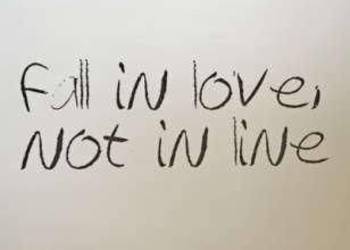 Fall in love,
Not in line